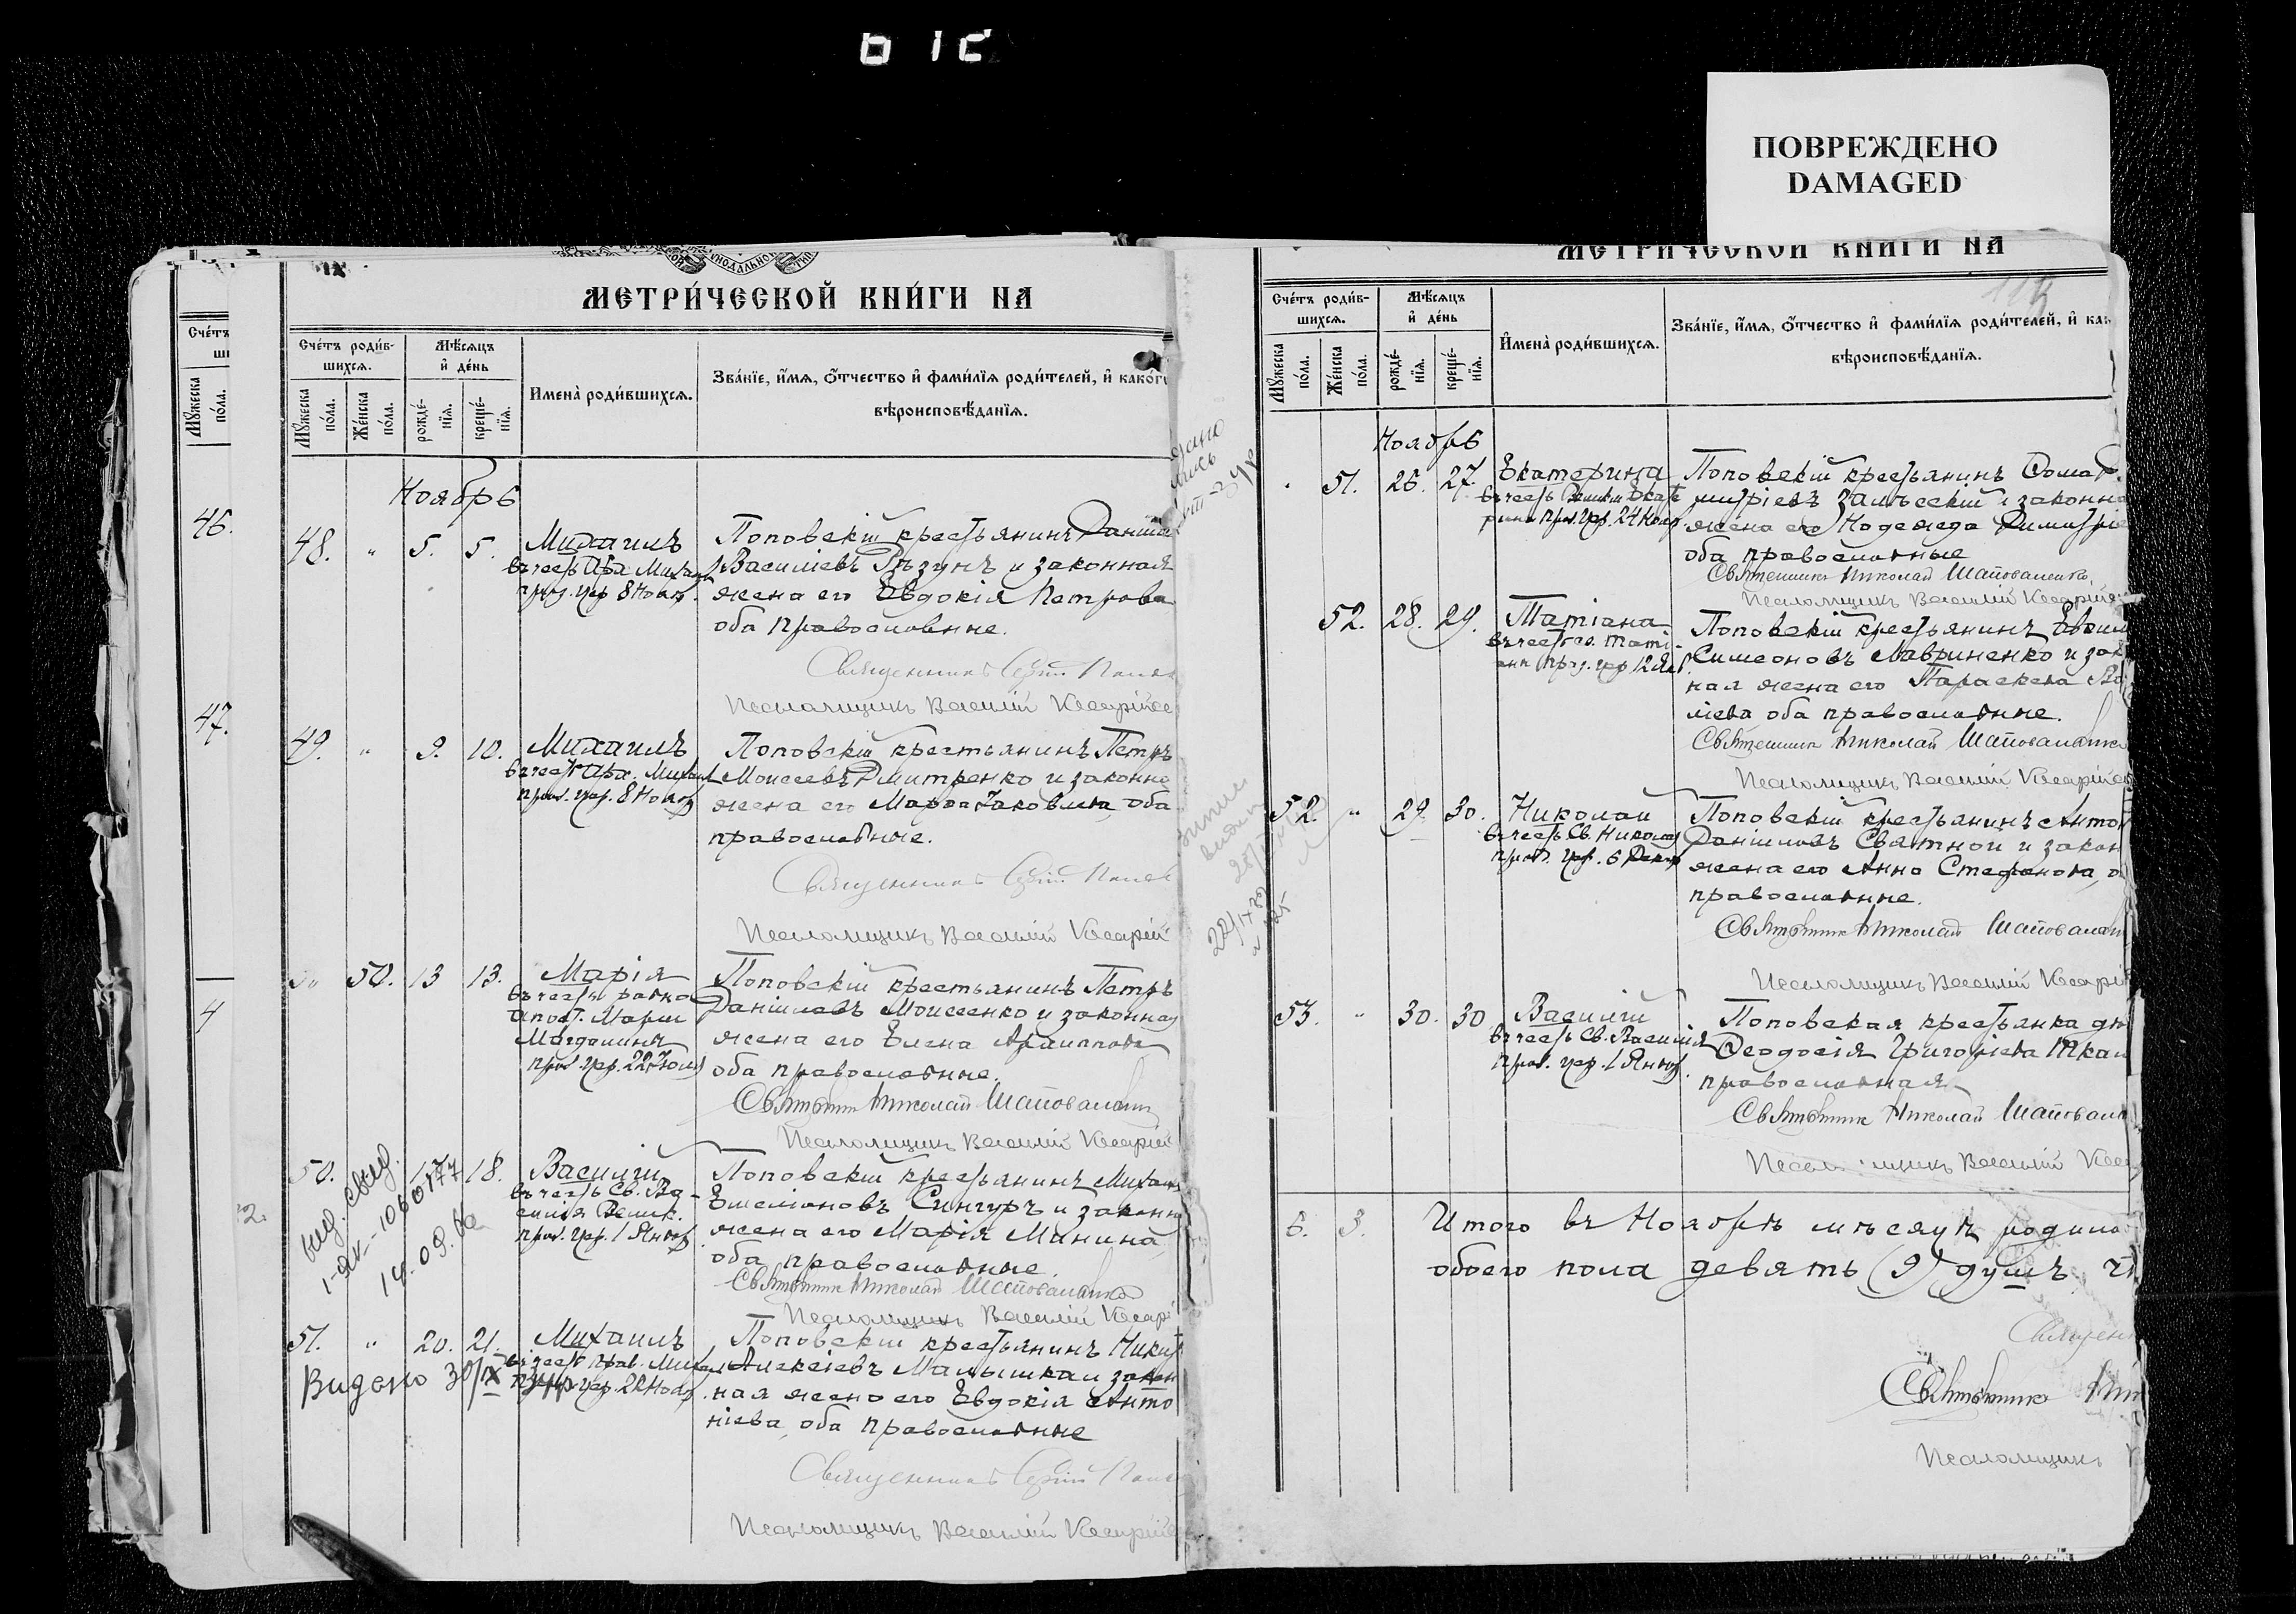 ПОВРЕЖДЕНО
DAMAGED
МЕТРИ́ЧЕСКОЙ КНИ́ГИ НА
Сче́тъ роди́в-
шихсѧ.
Мѣ́сѧцъ
и҆ де́нь
И҆менà роди́вшихсѧ.
Зва́нїе, и҆́мѧ, ѻ҆́тчество и҆ фами́лїѧ роди́телей, и҆ како́г
вѣроисповѣ́данїѧ.
Мꙋ́жеска
по́ла.
Же́нска
по́ла.
рожде́-
нїѧ.
креще́-
нїѧ.
46.
47.
4
Ноябрь
48. " 5. 5. Михаилъ
въ честь Арх. Михаила
праз. цер. 8 Нояб.
Поповскій крестьянинъ Даніил
Василіевъ Рѣзунъ и законная
жена его Евдокія Петрова
оба православные.
Священникъ Сергій
Псаломщикъ Василій Кесарійс
49. " 9. 10. Михаилъ
въ честь Арх. Михаил
праз. цер. 8 Нояб
Поповскій крестьянинъ Петръ
Моисеевъ Дмитренко и законна
жена его Марфа Іаковлева оба
православные.
Священникъ Сергій
Псаломщикъ Василій Кесарій
" 50. 13 13. Марія
въ честь равно
апост. Маріи
Магдалины
праз. цер. 22 Іюля
Поповскій крестьянинъ Петръ
Даніиловъ Моисеенко и законная
жена его Елена
оба православные.
Священник Николай Шаповаленк
Псаломщикъ Василій Кесарій
50. 17 18. Василій
въ честь Св. Ва-
силія Велик.
праз. цер. 1 Янвор
Поповскій крестьянинъ Михаил
Емеліановъ Сингуръ и законна
жена его Марія Минина
оба православные.
Священник Николай Шаповаленко
Псаломщикъ Василій Кесарі
выд. свид.
1-ЯК-1060177
14.09.
51. " 20. 21. Михаилъ
въ честь прав. Михаил
цер. 22 Нояб.
Поповскій крестьянинъ Никит
Алексіевъ Малышка и закон
ная жена его Евдокія Анто
ніева, оба православные
Видано 30/IX
Священникъ Сергій
Псаломщикъ Василій Кесарійс
МЕТРИ́ЧЕСКОЙ КНИ́ГИ НА
Сче́тъ роди́в-
шихсѧ.
Мѣ́сѧцъ
и҆ де́нь
И҆менà роди́вшихсѧ.
Зва́нїе, и҆́мѧ, ѻ҆́тчество и҆ фами́лїѧ роди́телей, и҆ как
вѣроисповѣ́данїѧ.
Мꙋ́жеска
по́ла.
Же́нска
по́ла.
рожде́-
нїѧ.
креще́-
нїѧ.
Ноябрь
51. 26. 27. Екатерина
въ честь Великом. Екате
рины праз. цер. 24 Нояб
Поповскій крестьянинъ Фома Д
митріевъ Залѣсскій и законна
жена его Надежда Димитріе
оба православные
Священникъ Николай Шаповаленко
Псаломщикъ Василій Кесарійс
52. 28. 29. Татіана
въ честь св. Тати
аны праз. цер 12 Янв.
Поповскій крестьянинъ Евфим
Симеоновъ Лавриненко и зак
ная жена его Параскева Ва
ліева оба православные.
Священник Николай Шаповаленко
Псаломщикъ Василій Кесарійс
52. " 29. 30. Николай
въ честь Св. Николая
праз. цер. 6 Декар
Поповскій крестьянинъ Антон
Даніиловъ Святной и закон
жена его Анна Стефанова, о
православные.
Священник Николай Шаповален
Псаломщикъ Василій Кесарій
53. " 30. 30 Василій
въ честь Св. Василія
праз. цер. 1 Янвор.
Поповская крестьянка дѣ
Феодосія Григоріева Ткач
православная
Священник Николай Шаповале
Псаломщикъ Василій Кес
6. 3. Итого въ Ноябрѣ мѣсяцѣ родило
обоего пола девять (9) душъ
Священ
Священник
Псаломщикъ